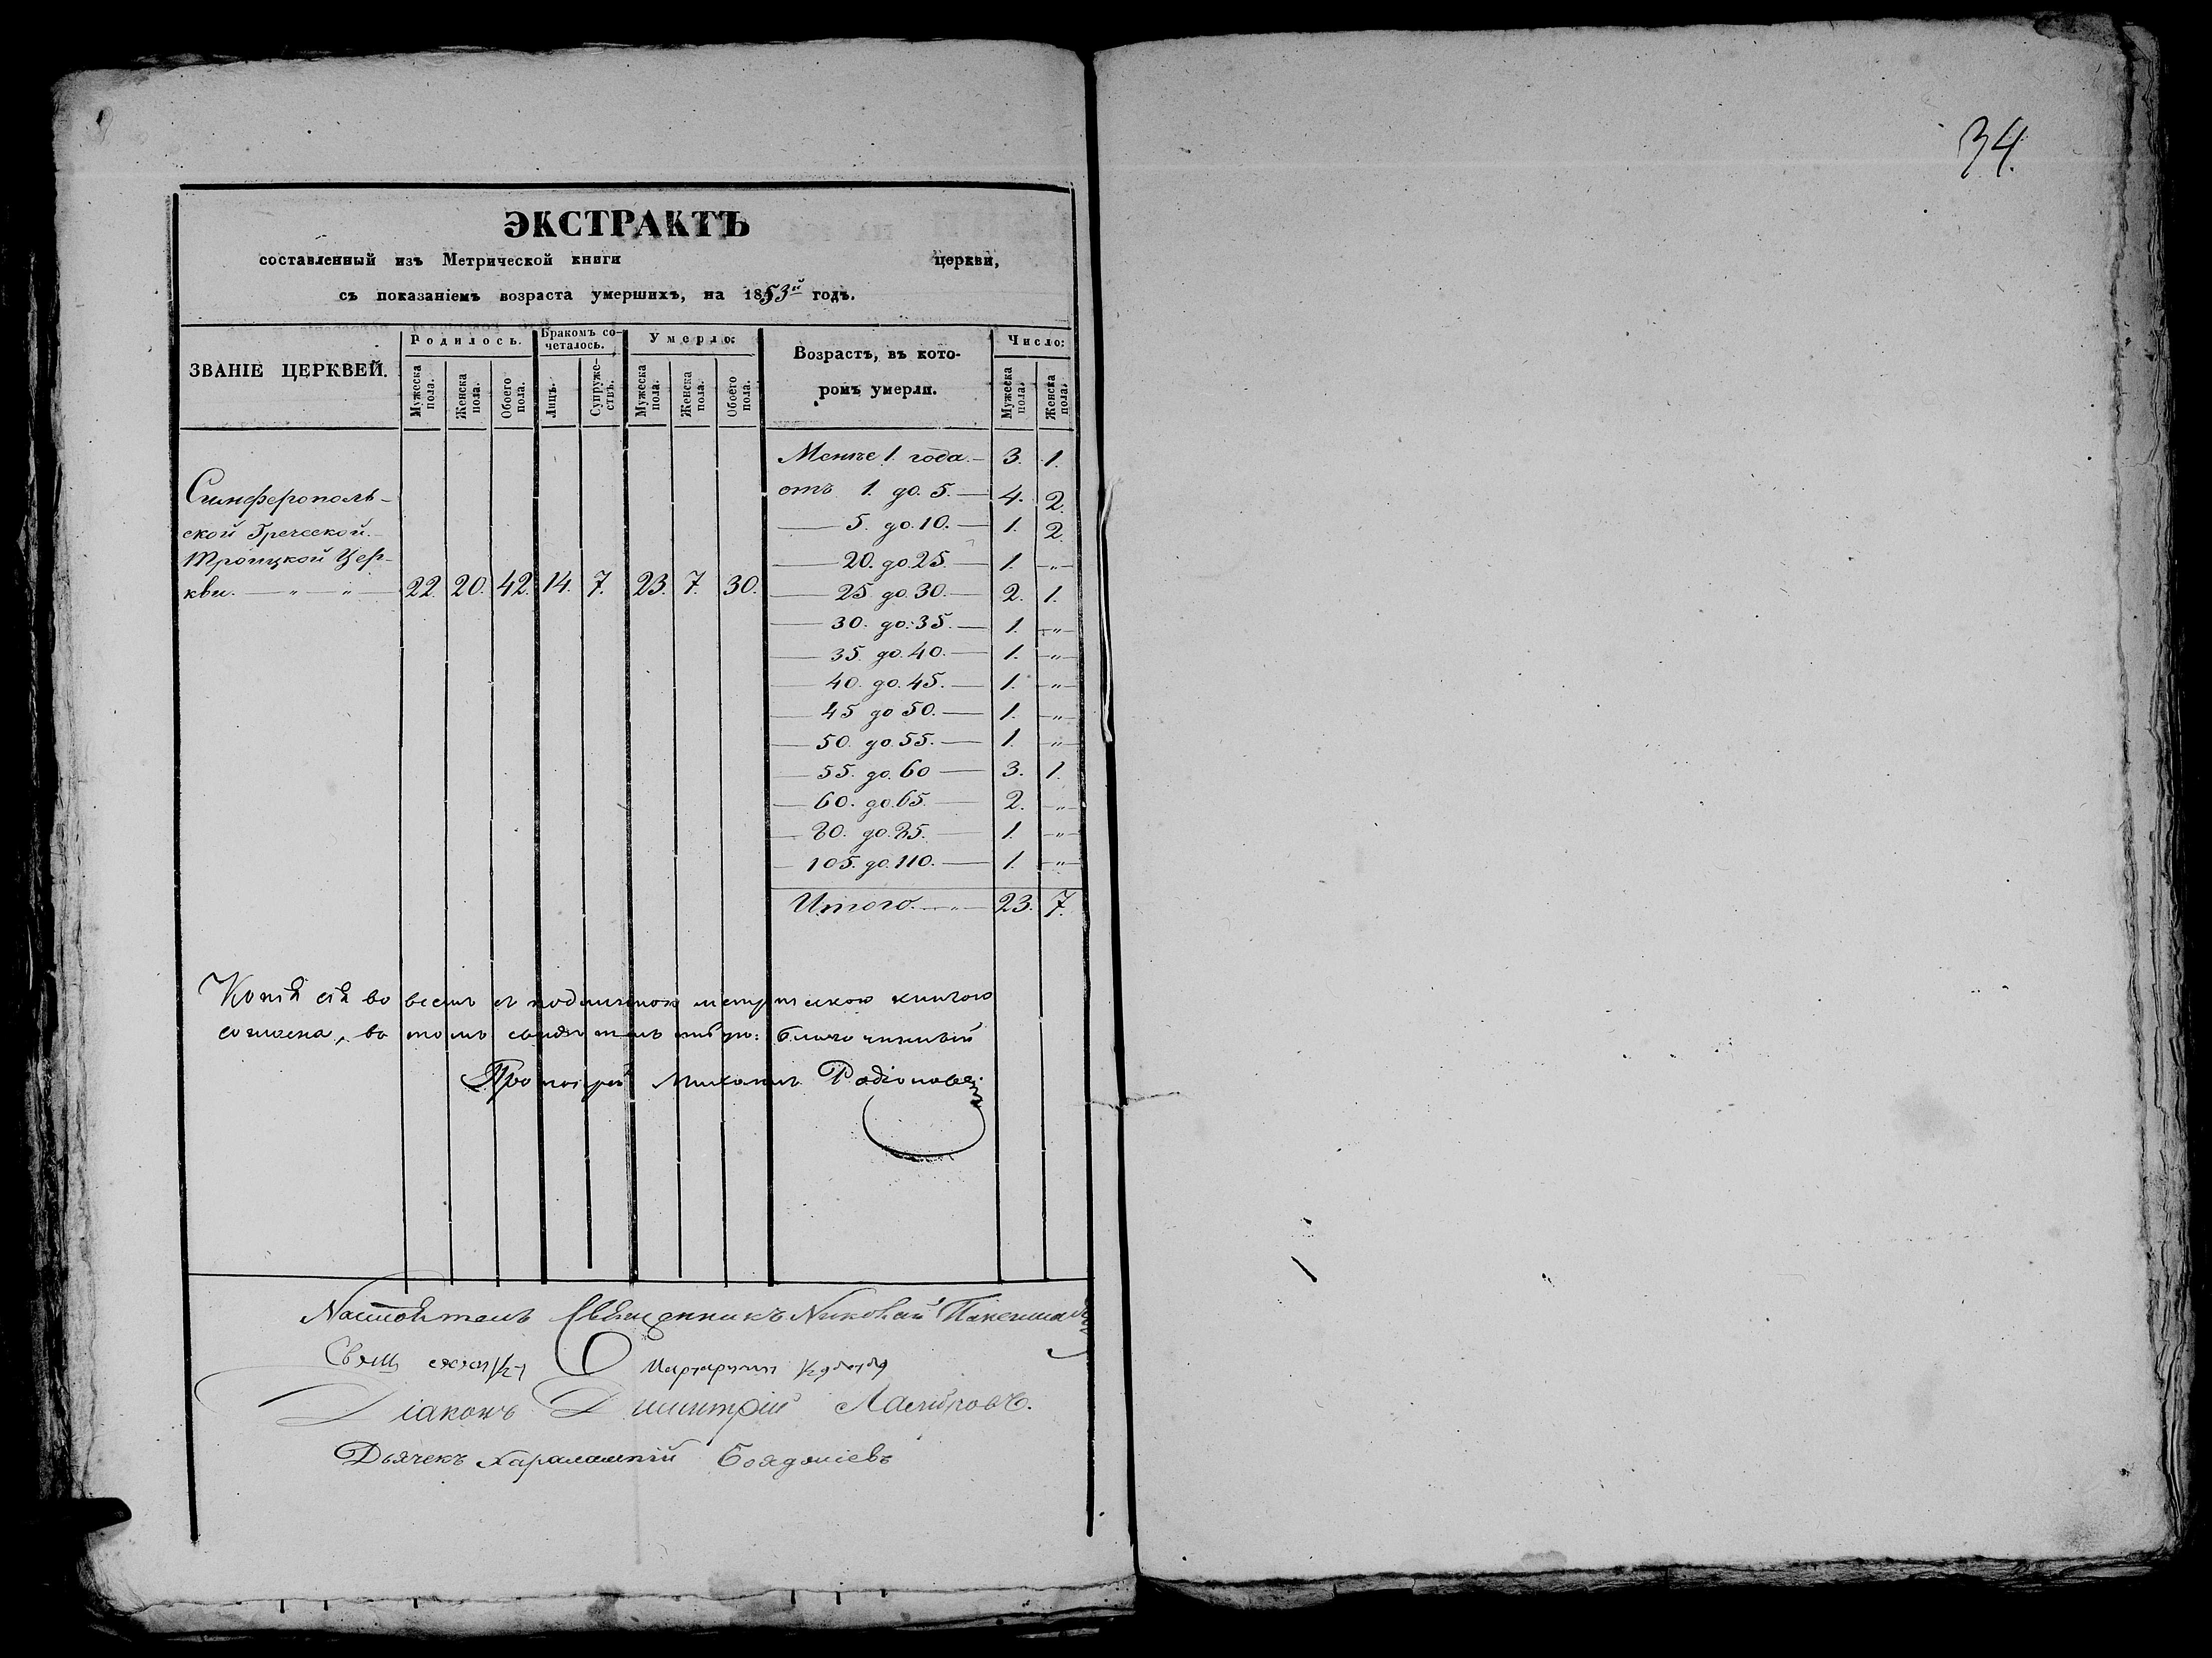 34.
ЭКСТРАКТЪ
составленный изъ Метрической книги церкви,
съ показаніемъ возраста умершихъ, на 1853й годъ.
ЗВАНІЕ ЦЕРКВЕЙ.
Родилось.
Мужеска пола.
Женска пола.
Обоего пола.
Бракомъ со-
четалось.
Лицъ.
Супруже-
ствъ.
Умерло:
Мужеска пола.
Женска пола.
Обоего пола.
Возрастъ, въ кото-
ромъ умерли.
Число:
Мужеска пола.
Женска пола.
Симферополь-
ской Греческой
Троицкой Цер-
кви. — „ — „ — 22. 20. 42. 14. 7. 23. 7. 30.
Менѣе 1 года. — 3. 1.
отъ 1. до 5. — 4. 2.
— 5. до 10. — 1. 2.
— 20. до 25. — 1. „
— 25 до 30. — 2. 1.
— 30. до 35. — 1. „
— 35. до 40. — 1. „
— 40. до 45. — 1. „
— 45 до 50. — 1. „
— 50. до 55. — 1. „
— 55. до 60 — 3. 1.
— 60. до 65. — 2. „
— 80. до 85. — 1. „
— 105. до 110. — 1. „
Итого. — „ — 23. 7.
Копія сія во всемъ съ подлинною метрическою книгою
согласна, въ томъ свидѣтельствую: благочинный
Протоіерей Михаилъ Родіоновъ
Настоятель Священникъ Николай
Свящ
Діаконъ Димитрій
Дьячекъ Харалампій